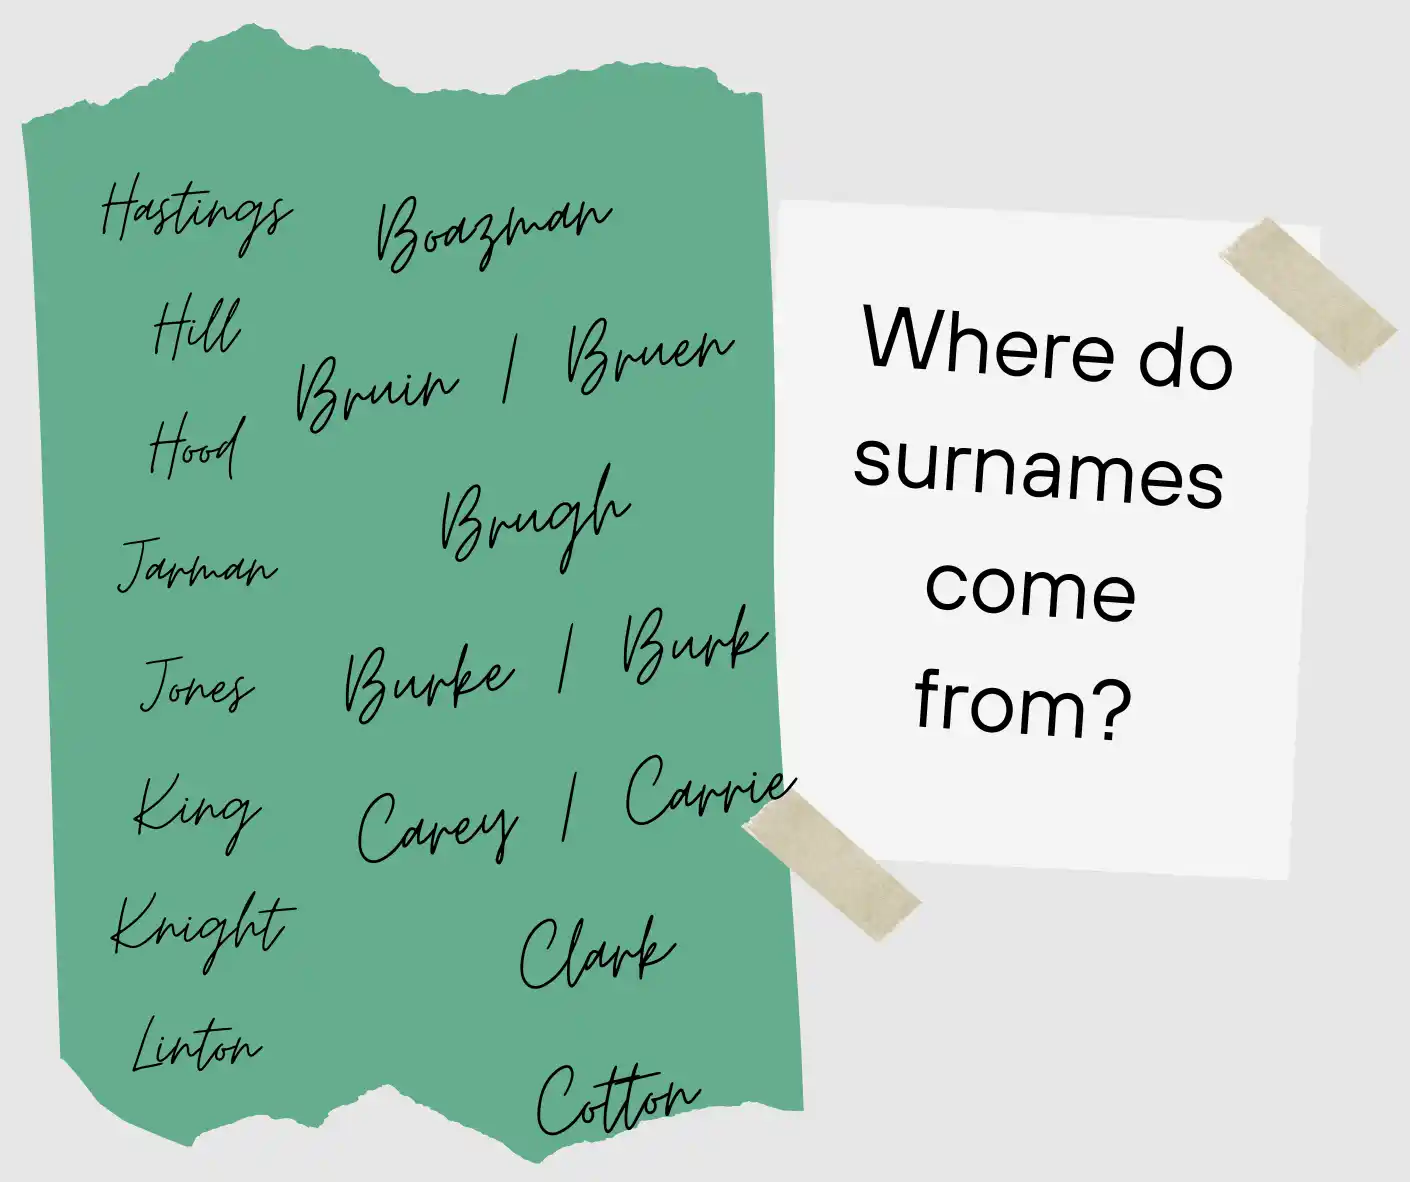 Hastings
Hill
Hood
Jarman
Jones
King
Knight
Linton
Boazman
Bruin / Bruen
Brugh
Burke / Burk
Carey / Carrie
Clark
Cotton
Where do
surnames
come
from?